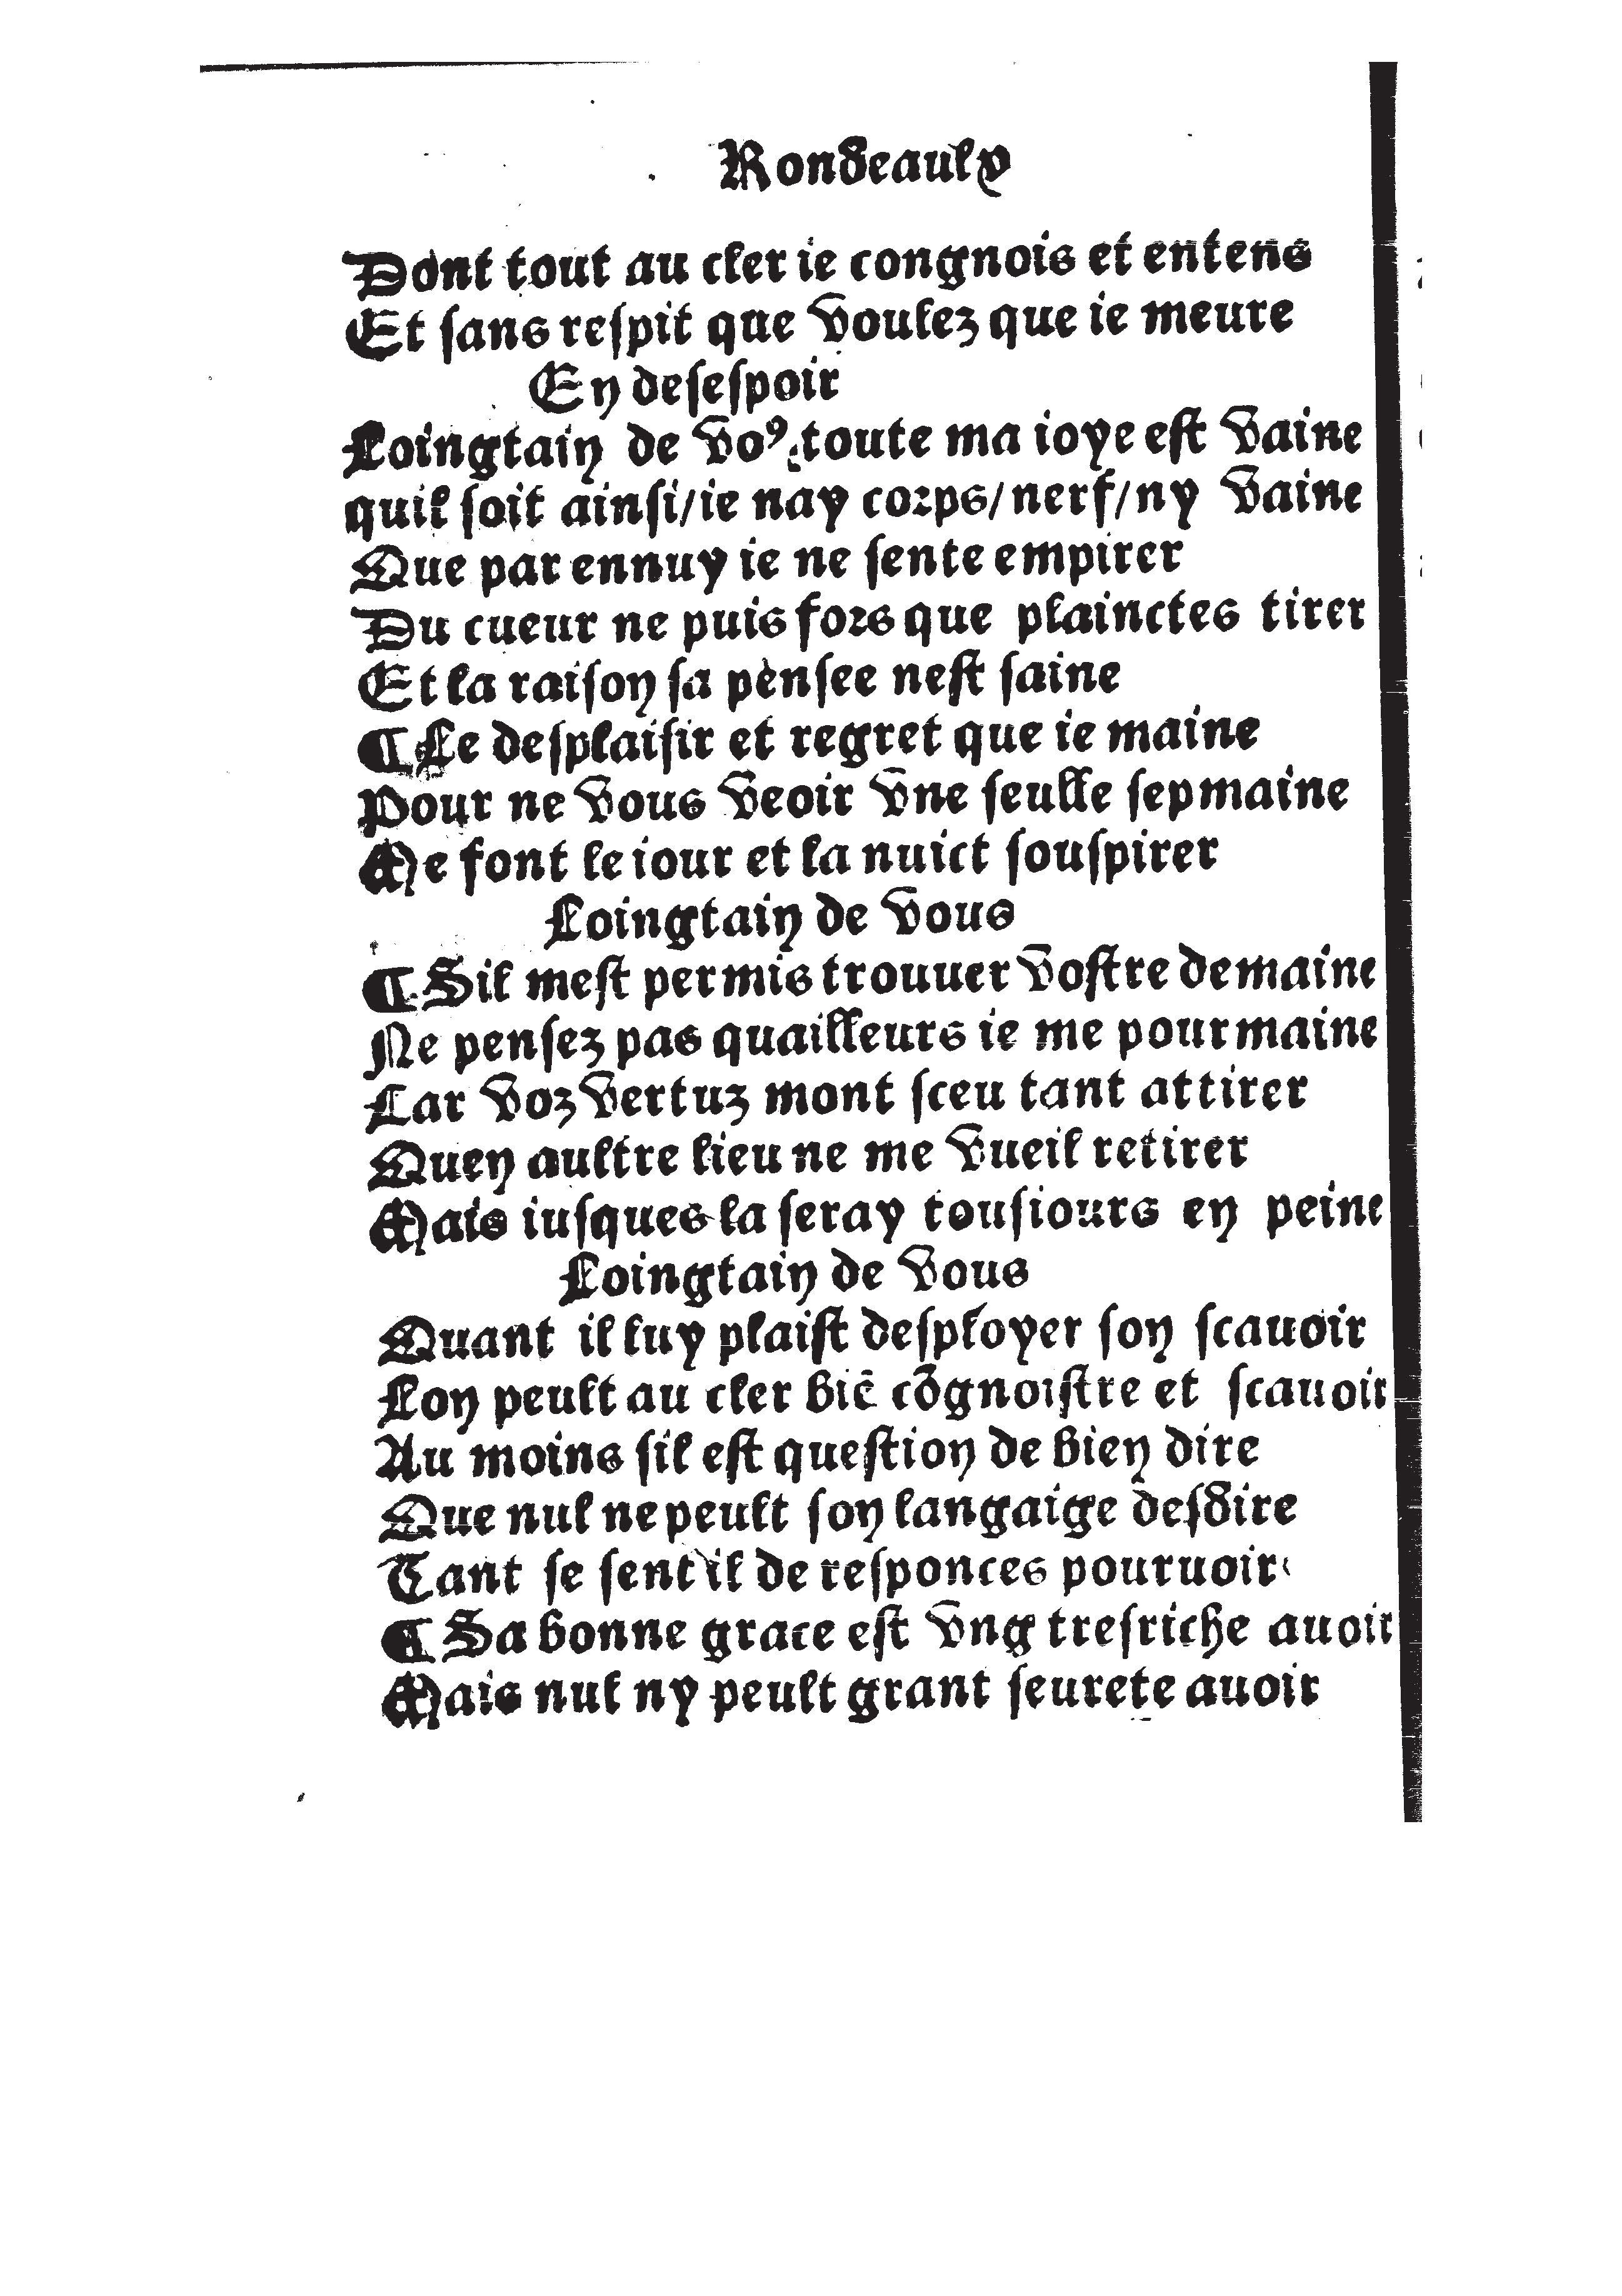 Rondeaulx
Dont tout au cler ie congnois et entens
Et sans respit que voulez que ie meure
En desespoir
Loingtain de voꝰ toute ma ioye est vaine
quil soit ainsi/ie nay corps/nerf/ny vaine
Que par ennuy ie ne sente empirer
Du cueur ne puis fors que plainctes tirer
Et la raison sa pensee nest saine
¶Le desplaisir et regret que ie maine
Pour ne vous veoir vne seulle sepmaine
Me font le iour et la nuict souspirer
Loingtain de vous
¶Sil mest permis trouuer vostre demaine
Ne pensez pas quailleurs ie me pourmaine
Car voz vertuz mont sceu tant attirer
Quen aultre lieu ne me vueil retirer
Mais iusques la seray tousiours en peine
Loingtain de vous
Quant il luy plaist desployer son scauoir
Lon peult au cler biē cõgnoistre et scauoir
Au moins sil est question de bien dire
Que nul ne peult son langaige desdire
Tant se sent il de responces pouruoir
¶Sa bonne grace est vng tresriche auoir
Mais nul ny peult grant seurete auoir